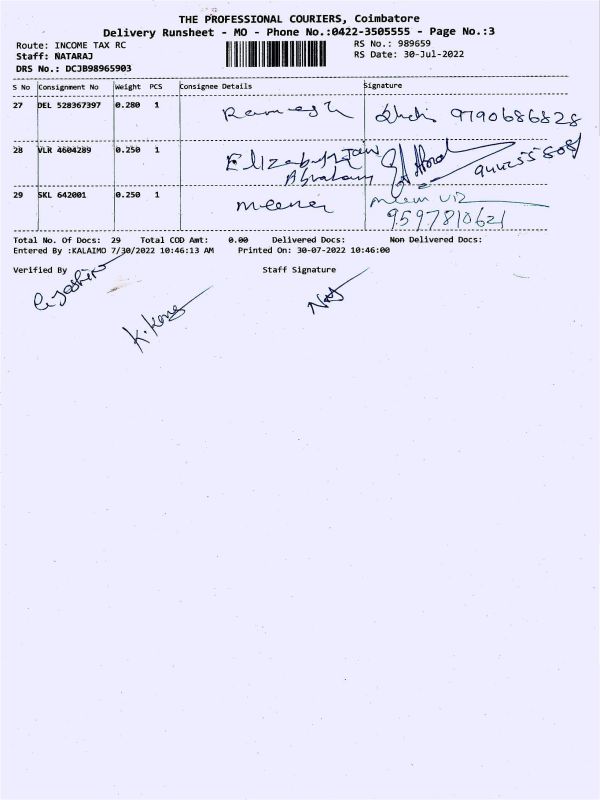 THE PROFESSIONAL COURIERS, Coimbatore
Delivery Runsheet - MO - Phone No.:0422-3505555 - Page No.:3
Route: INCOME TAX RC
RS No.: 989659
Staff: NATARAJ
RS Date: 30-Jul-2022
DRS No.: DCJB98965903
S No Consignment No Weight PCS Consignee Details Signature
27 DEL 528367397 0.280 1 Ramesh 9790686828
28 VLR 4604289 0.250 1 Elizabeth
Abraham
29 SKL 642001 0.250 1 meena
9597810621
Total No. Of Docs: 29 Total COD Amt: 0.00 Delivered Docs: Non Delivered Docs:
Entered By :KALAIMO 7/30/2022 10:46:13 AM Printed On: 30-07-2022 10:46:00
Verified By Staff Signature